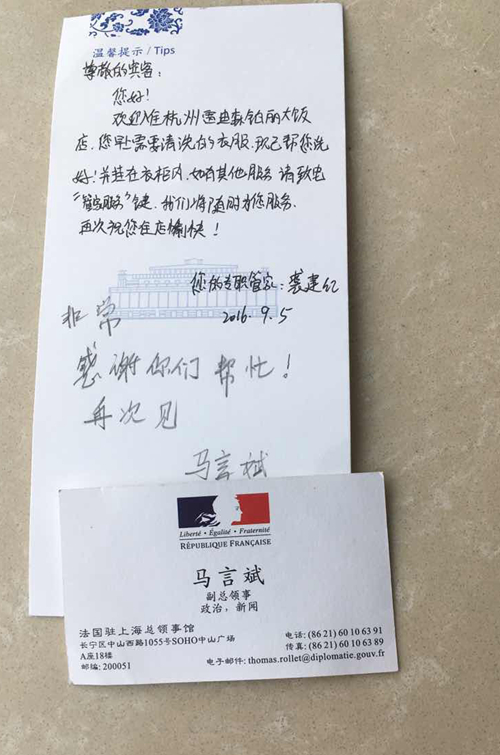 温馨提示 / Tips
尊敬的宾客：
您好！
欢迎入住杭州雷迪森铂丽大饭
店，您早上需要清洗的衣服，现已帮您洗
好！并挂在衣柜内，如有其他服务，请致电
“管家服务”键，我们将随时为您服务。
再次祝您住店愉快！
您的专职管家：裘建红
2016.9.5
非常
感谢你们帮忙！
再次见
马言斌
Liberté • Égalité • Fraternité
RÉPUBLIQUE FRANÇAISE
马言斌
副总领事
政治，新闻
法国驻上海总领事馆
长宁区中山西路1055号SOHO中山广场
A座18楼
邮编: 200051
电话: (86 21) 60 10 63 91
传真: (86 21) 60 10 63 89
电子邮件: thomas.rollet@diplomatie.gouv.fr